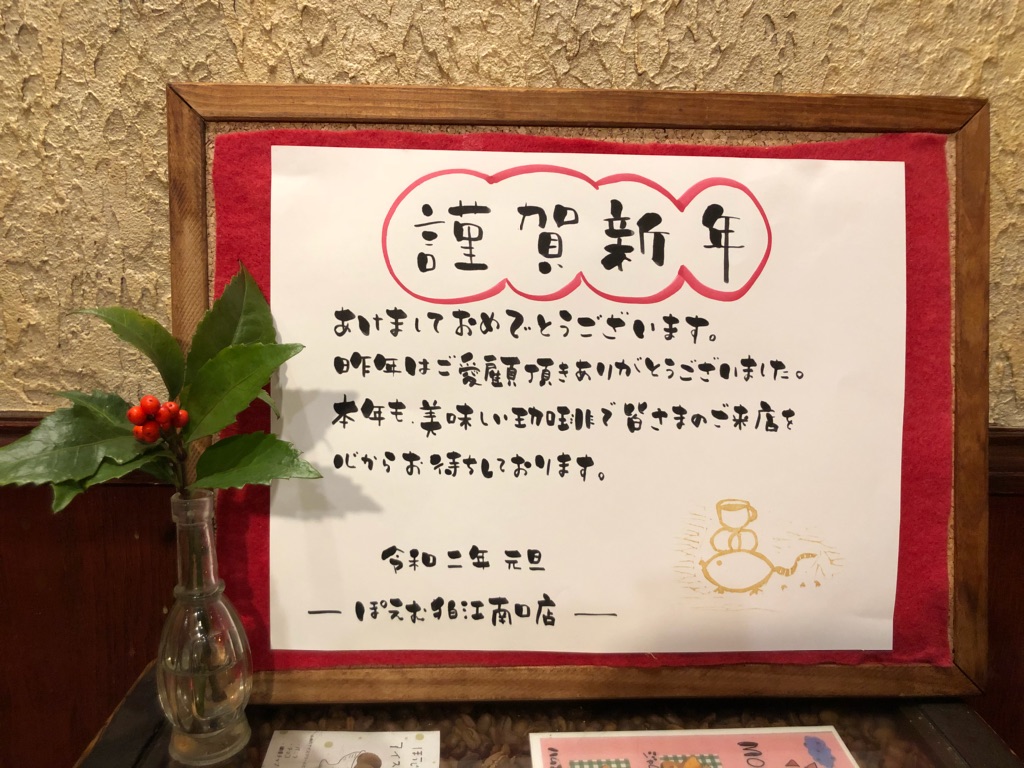 謹賀新年
あけましておめでとうございます。
昨年はご愛顧頂きありがとうございました。
本年も、美味しい珈琲で皆さまのご来店を
心からお待ちしております。
令和二年 元旦
― ぽえむ狛江南口店 ―
MO